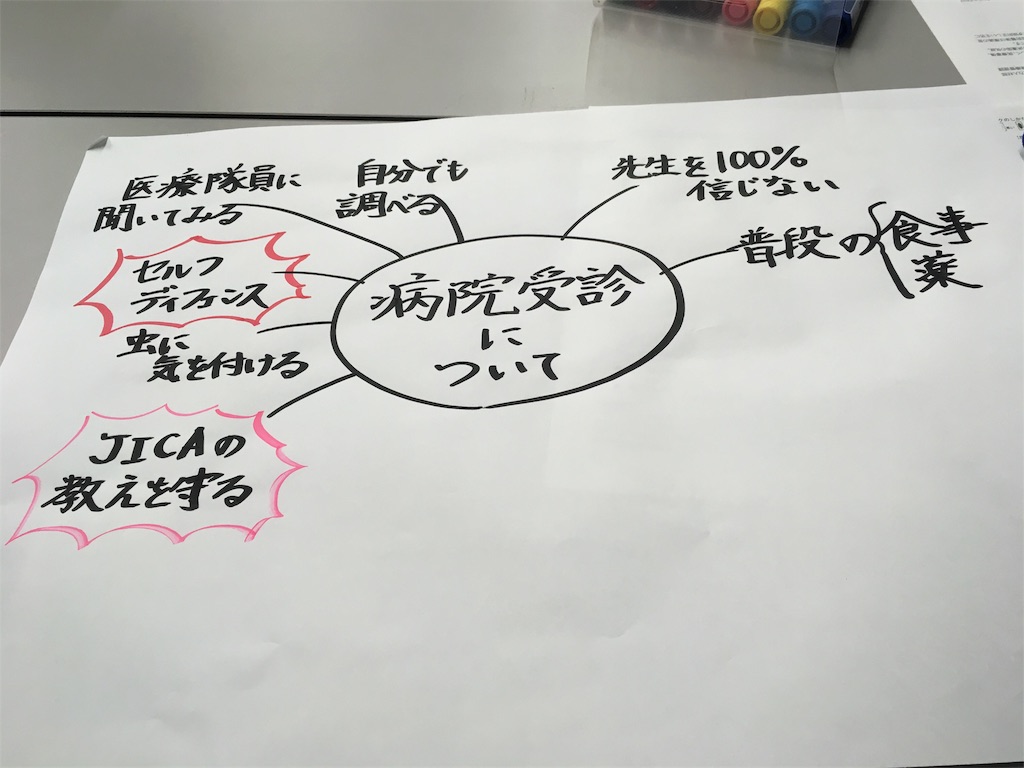 医療隊員に
聞いてみる
自分でも
調べる
先生を100%
信じない
普段の食事
薬
セルフ
ディフェンス
病院受診
に
ついて
虫に
気を付ける
JICAの
教えを守る